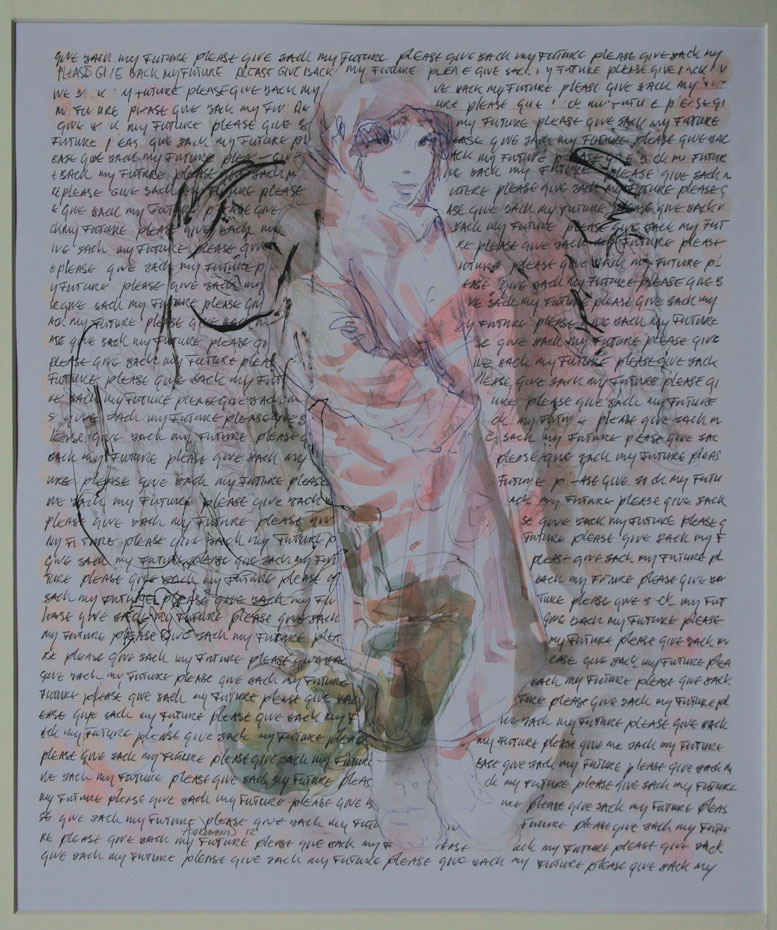 GIVE BACK MY FUTURE PLEASE GIVE BACK MY FUTURE PLEASE GIVE BACK MY FUTURE PLEASE GIVE BACK MY
PLEASE GIVE BACK MY FUTURE PLEASE GIVE BACK MY FUTURE PLEASE GIVE BACK MY FUTURE PLEASE GIVE BACK
MY FUTURE PLEASE GIVE BACK MY VE BACK MY FUTURE PLEASE GIVE BACK MY
FUTURE PLEASE GIVE BACK MY FUTURE URE PLEASE GIVE BACK MY FUTURE PLEASE GI
GIVE BACK MY FUTURE PLEASE GIVE B MY FUTURE PLEASE GIVE BACK MY FUTURE
FUTURE PLEASE GIVE BACK MY FUTURE PL EASE GIVE BACK MY FUTURE PLEASE GIVE BAC
EASE GIVE BACK MY FUTURE PLEASE GIVE ACK MY FUTURE PLEASE GIVE BACK MY FUTUR
E BACK MY FUTURE PLEASE GIVE BACK M VE BACK MY FUTURE PLEASE GIVE BACK M
RE PLEASE GIVE BACK MY FUTURE PLEASE UTURE PLEASE GIVE BACK MY FUTURE PLEASE G
E GIVE BACK MY FUTURE PLEASE GIVE ASE GIVE BACK MY FUTURE PLEASE GIVE BACK
CK MY FUTURE PLEASE GIVE BACK MY BACK MY FUTURE PLEASE GIVE BACK MY FUT
IVE BACK MY FUTURE PLEASE GIVE RE PLEASE GIVE BACK MY FUTURE PLEASE
E PLEASE GIVE BACK MY FUTURE P UTURE PLEASE GIVE BACK MY FUTURE PL
Y FUTURE PLEASE GIVE BACK MY EASE GIVE BACK MY FUTURE PLEASE GIVE B
K GIVE BACK MY FUTURE PLEASE GIV VE BACK MY FUTURE PLEASE GIVE BACK MY
ACK MY FUTURE PLEASE GIVE BACK M MY FUTURE PLEASE GIVE BACK MY FUTURE
ASE GIVE BACK MY FUTURE PLEASE GI SE GIVE BACK MY FUTURE PLEASE GIVE
PLEASE GIVE BACK MY FUTURE PLEAS IVE BACK MY FUTURE PLEASE GIVE BACK
FUTURE PLEASE GIVE BACK MY FUT PLEASE GIVE BACK MY FUTURE PLEASE GI
RE BACK MY FUTURE PLEASE GIVE BACK M URE PLEASE GIVE BACK MY FUTURE
S GIVE BACK MY FUTURE PLEASE GIVE B CK MY FUTURE PLEASE GIVE BACK M
LEASE GIVE BACK MY FUTURE PLEASE G E BACK MY FUTURE PLEASE GIVE BAC
BACK MY FUTURE PLEASE GIVE BACK MY PLEASE GIVE BACK MY FUTURE PLEAS
URE PLEASE GIVE BACK MY FUTURE PLEASE FUTURE PLEASE GIVE BACK MY FUTU
VE BACK MY FUTURE PLEASE GIVE BACK M ACK MY FUTURE PLEASE GIVE BACK
PLEASE GIVE BACK MY FUTURE PLEASE GIV SE GIVE BACK MY FUTURE PLEASE G
MY FUTURE PLEASE GIVE BACK MY FUTURE P FUTURE PLEASE GIVE BACK MY F
GIVE BACK MY FUTURE PLEASE GIVE BACK MY FUT PLEASE GIVE BACK MY FUTURE PL
TURE PLEASE GIVE BACK MY FUTURE PLEASE GI BACK MY FUTURE PLEASE GIVE BA
BACK MY FUTURE PLEASE GIVE BACK MY FUTU TURE PLEASE GIVE BACK MY FUT
LEASE GIVE BACK MY FUTURE PLEASE GIVE BACK GIVE BACK MY FUTURE PLEASE
MY FUTURE PLEASE GIVE BACK MY FUTURE PLEA MY FUTURE PLEASE GIVE BACK M
RE PLEASE GIVE BACK MY FUTURE PLEASE GIVE BAC EASE GIVE BACK MY FUTURE PLEA
GIVE BACK MY FUTURE PLEASE GIVE BACK MY FUTURE VE BACK MY FUTURE PLEASE GIVE BACK
FUTURE PLEASE GIVE BACK MY FUTURE PLEASE GIVE BAC TURE PLEASE GIVE BACK MY FUTURE PL
EASE GIVE BACK MY FUTURE PLEASE GIVE BACK MY F IVE BACK MY FUTURE PLEASE GIVE BACK
ACK MY FUTURE PLEASE GIVE BACK MY FUTURE PLEASE MY FUTURE PLEASE GIVE ME BACK MY FUTURE
PLEASE GIVE BACK MY FUTURE PLEASE GIVE BACK MY FUTURE EASE GIVE BACK MY FUTURE PLEASE GIVE BACK M
VE BACK MY FUTURE PLEASE GIVE BACK MY FUTURE PLEAS CK MY FUTURE PLEASE GIVE BACK MY FUTURE
MY FUTURE PLEASE GIVE BACK MY FUTURE PLEASE GIVE B URE PLEASE GIVE BACK MY FUTURE PLEAS
SE GIVE BACK MY FUTURE PLEASE GIVE BACK MY FUTU FUTURE PLEASE GIVE BACK MY FUTU
RE PLEASE GIVE BACK MY FUTURE PLEASE GIVE BACK MY F EASE ACK MY FUTURE PLEASE GIVE BACK
GIVE BACK MY FUTURE PLEASE GIVE BACK MY FUTURE PLEASE GIVE BACK MY FUTURE PLEASE GIVE BACK MY